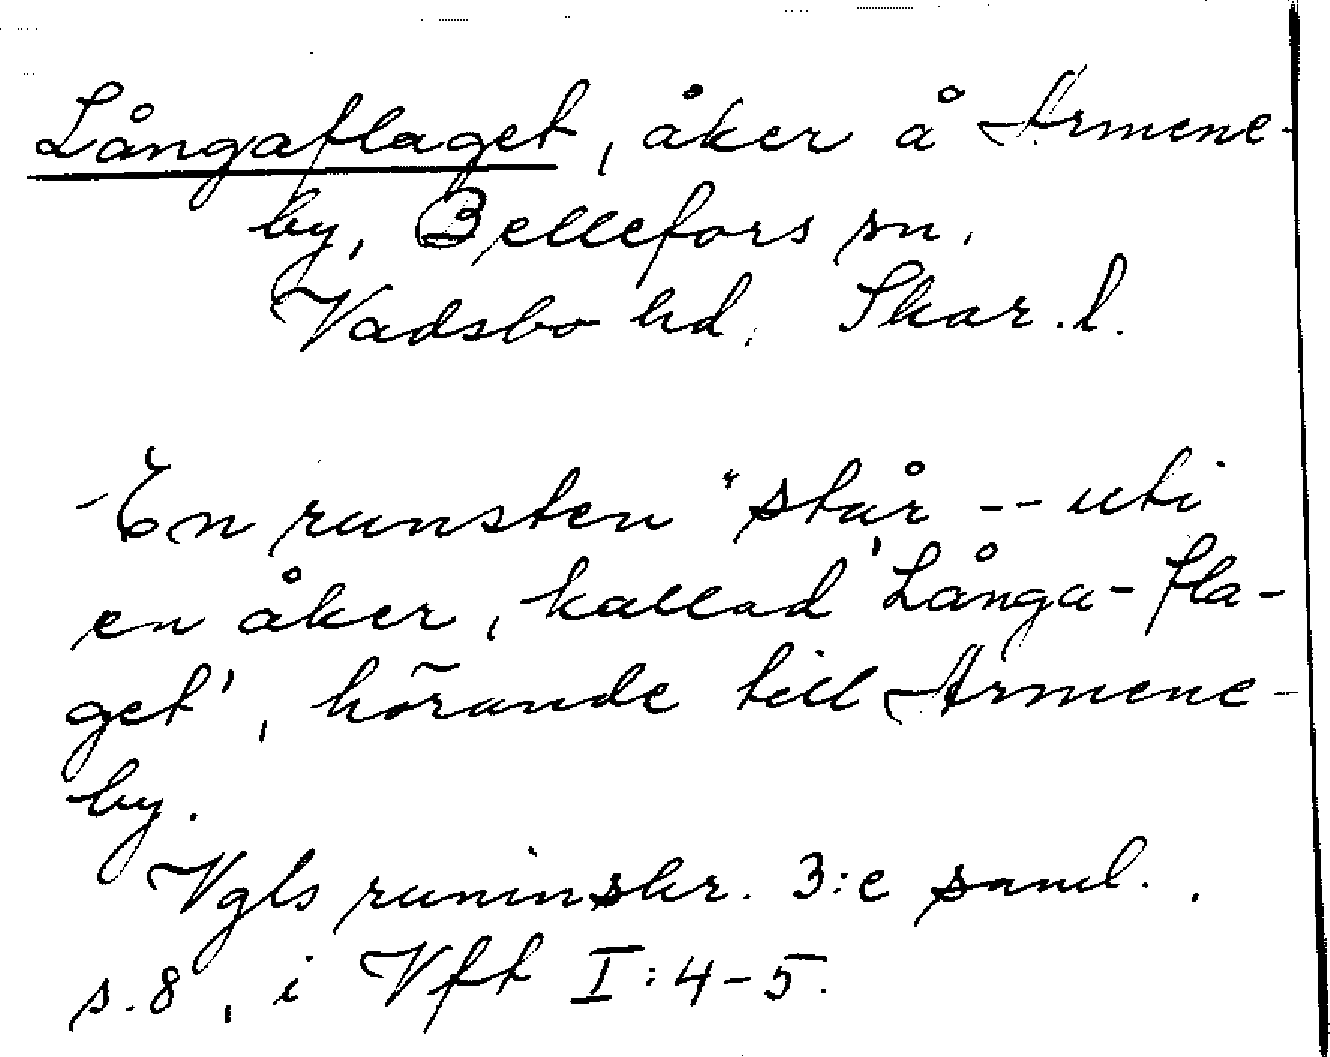 Långaflaget, åker å Armene-
by, Bellefors sn.
Vadsbo hd. Skar. l.
En runsten "står -- uti
en åker, kallad 'Långa-fla-
get', hörande till Armene-
by.
Vgls runinskr. 3:e saml.,
s. 8, i Vft I:4-5.